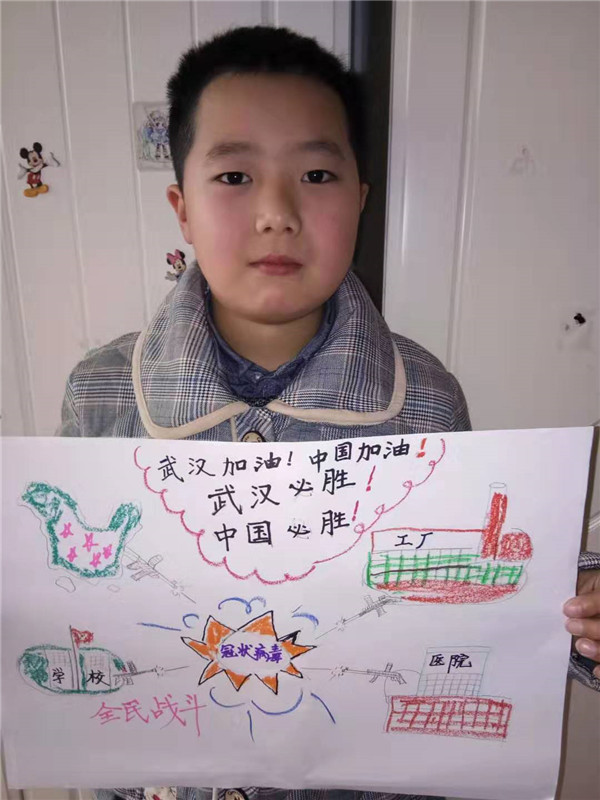 武汉加油！中国加油！
武汉必胜！
中国必胜！
工厂
冠状病毒
学校
医院
全民战斗